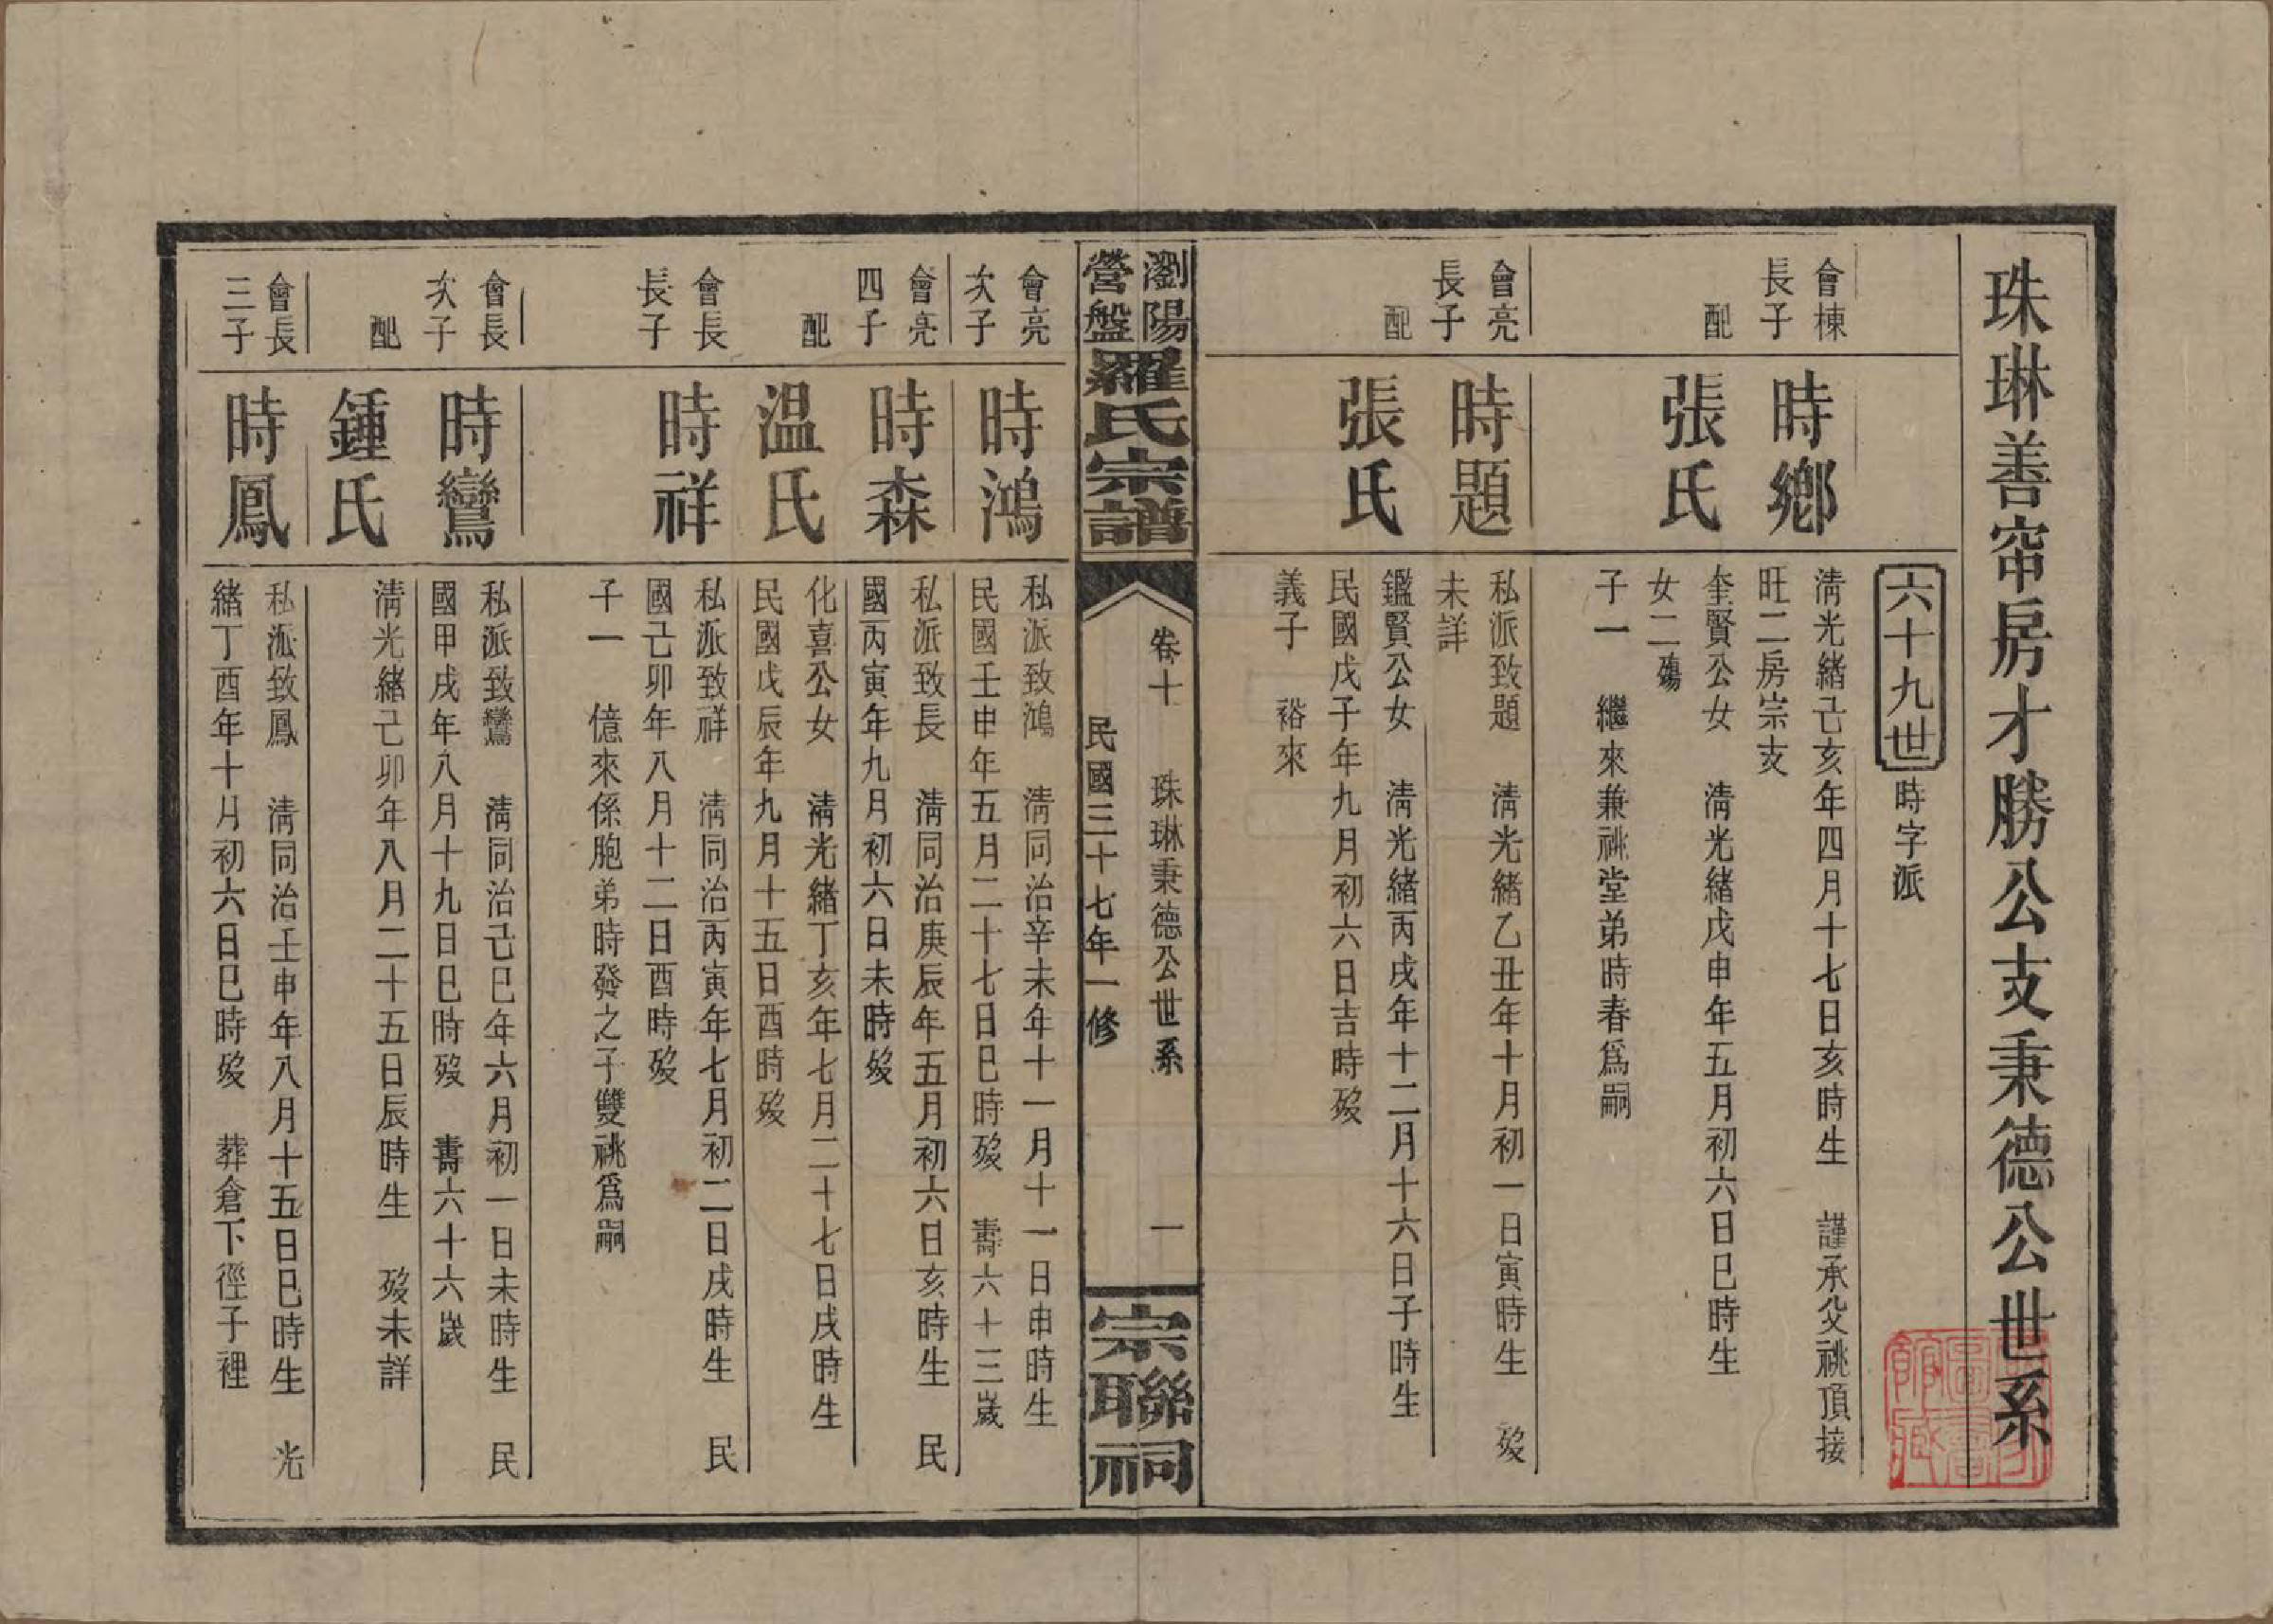 珠琳善窜房才勝公支秉德公世系
六十九世 時字派
會棟
長子
時鄉
清光緒己亥年四月十七日亥時生 謹承父祧頂接
旺二房宗支
配
張氏
奎賢公女 清光緒戊申年五月初六日巳時生
女二殤
子一 繼來兼祧堂弟時春爲嗣
會亮
長子
時題
私派致題 清光緒乙丑年十月初一日寅時生 歿
未詳
配
張氏
鑑賢公女 清光緒丙戌年十二月十六日子時生
民國戊子年九月初六日吉時歿
義子 裕來
瀏陽
營盤
羅氏宗譜
卷十 珠琳秉德公世系 一
民國三十七年一修
宗聯祠
會亮
次子
時鴻
私派致鴻 清同治辛未年十一月十一日申時生
民國壬申年五月二十七日巳時歿 壽六十三歲
會亮
四子
時森
私派致長 清同治庚辰年五月初六日亥時生 民
國丙寅年九月初六日未時歿
配
温氏
化喜公女 清光緒丁亥年七月二十七日戌時生
民國戊辰年九月十五日酉時歿
會長
長子
時祥
私派致祥 清同治丙寅年七月初二日戌時生 民
國己卯年八月十二日酉時歿
子一 億來係胞弟時發之子雙祧爲嗣
會長
次子
時鸞
私派致鸞 清同治己巳年六月初一日未時生 民
國甲戌年八月十九日巳時歿 壽六十六歲
配
鍾氏
清光緒己卯年八月二十五日辰時生 歿未詳
會長
三子
時鳳
私派致鳳 清同治壬申年八月十五日巳時生 光
緒丁酉年十月初六日巳時歿 葬倉下徑子裡